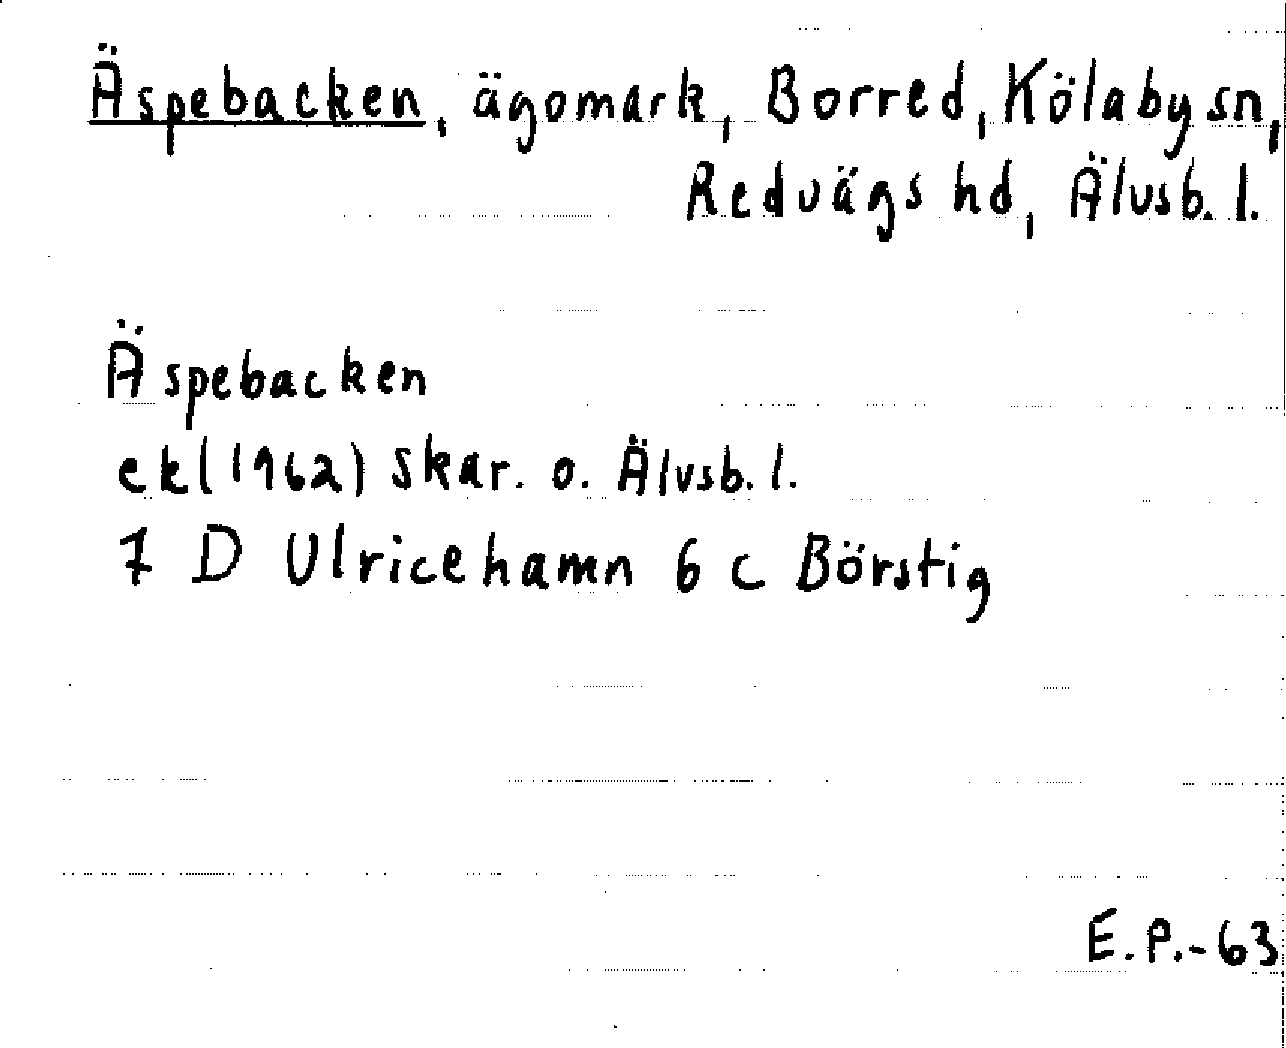 Äspebacken, ägomark, Borred, Kölaby sn,
Redvägs hd, Älvsb. l.
Äspebacken
ekl (1962) Skar. o. Älvsb. l.
7 D Ulricehamn 6 c Börstig
E.P.-63